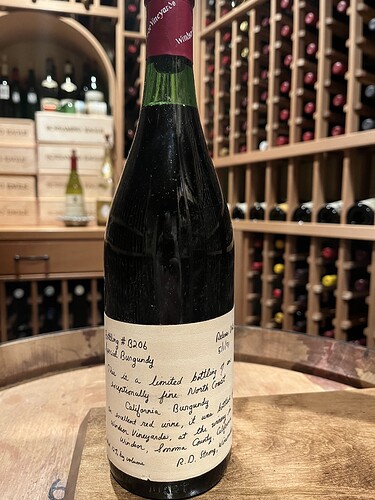 Vineyards
Windsor
Bottling # B206
Special Burgundy
Release
This is a limited bottling of an
exceptionally fine North Coast
California Burgundy
excellent red wine, it was bottled
Windsor Vineyards, at the winery in
Windsor, Sonoma County,
by volume
R. D. Strong,